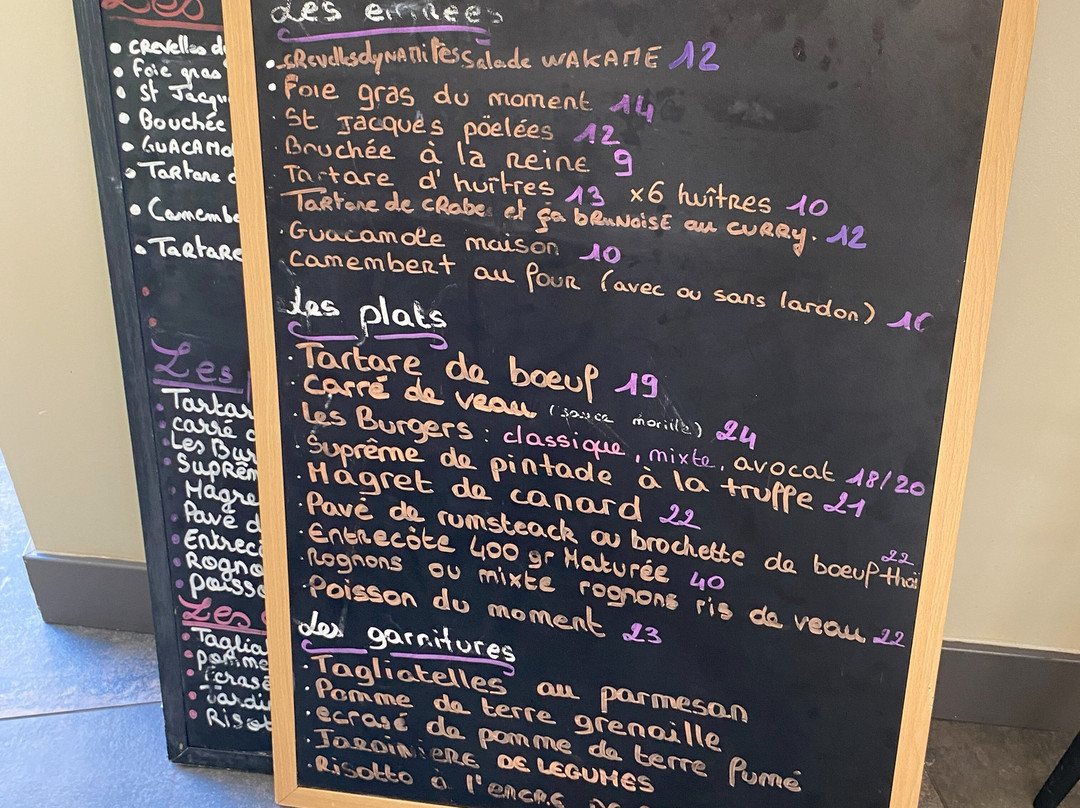 Les
• CRevelles d
• Foie gras
• St Jacqu
• Bouchée
• GUACAMO
• TaRTare d
• Camembe
• TaRtaRe
Les
• Tartar
• carré d
• Les Bur
• Suprêm
• Magre
• Pavé d
• Entrec
• Rogno
• poisso
Les
• Taglia
• pomme
• écrasé
• Jardi
• Risot
Les entrées
• CRevellesdyNAMiTesSalade WAKAME 12
• Foie gras du moment 14
• St Jacques pöelées 12
• Bouchée à la Reine 9
• Tartare d'huîtres 13 x6 huîtRes 10
TaRtare de cRabe et sa bRuNoiSE au cuRRy. 12
• Guacamole maison 10
camembeRt au fouR (avec ou sans lardon)
Les plats
• Tartare de boeuf 19
• Carré de veau (sauce morille) 24
• Les Burgers : classique, mixte, avocat 18/20
• Suprême de pintade à la truffe 21
• Magret de canard 22
• Pavé de rumsteack ou brochette de boeuf thaï 22
• Entrecôte 400 gr Maturée 40
• Rognons ou mixte rognons ris de veau 22
• Poisson du moment 23
Les garnitures
• Tagliatelles au parmesan
• Pomme de terre grenaille
• ecrasé de pomme de terre fumé
• JaRDINiERE DE LEGUMES
• Risotto à l'encre de